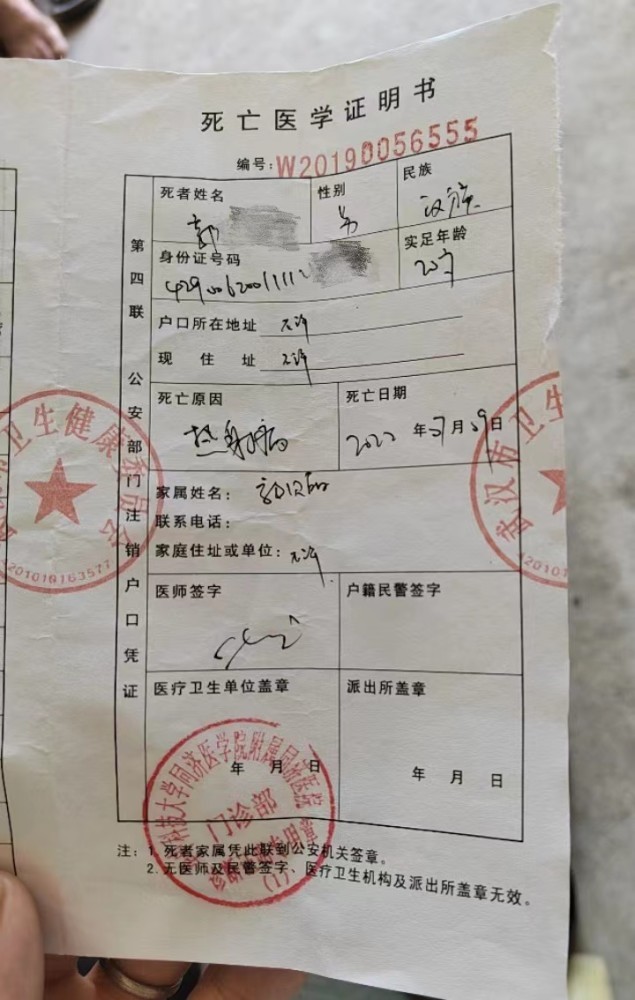 死亡医学证明书
编号:W20190056555
第四联 公安部门注销户口凭证
死者姓名 郭
性别 男
民族 汉族
身份证号码
实足年龄 20岁
户口所在地址 不详
现住址 不详
死亡原因 热射病
死亡日期 2022年07月09日
家属姓名:
联系电话:
家庭住址或单位:不详
医师签字
户籍民警签字
医疗卫生单位盖章
年 月 日
派出所盖章
年 月 日
注:1.死者家属凭此联到公安机关签章。
2.无医师及民警签字、医疗卫生机构及派出所盖章无效。
卫生健康委员会
201010163577
武汉市卫生
420101
科技大学同济医学院附属同济医院
门诊部
(1)